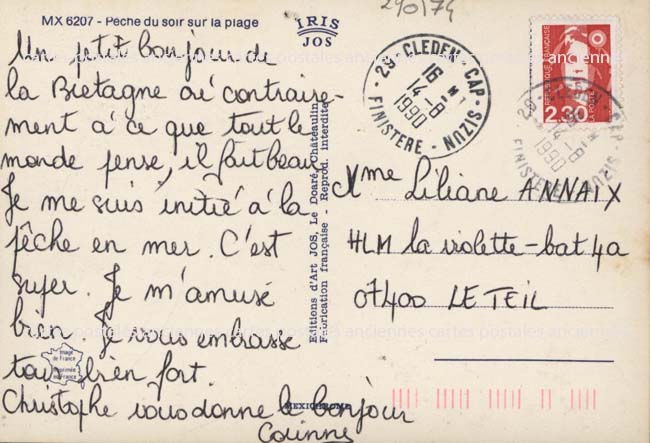 290174
MX 6207 - Pêche du soir sur la plage
IRIS
JOS
Un petit bonjour de
la Bretagne où contraire-
ment à ce que tout le
monde pense, il fait beau.
Je me suis initié à la
pêche en mer. C'est
super. Je m'amuse
bien. Je vous embrasse
tous bien fort.
Christophe vous donne le bonjour
Corinne
Image de France
Imprimée en France
Editions d'Art JOS, Le Doaré, Châteaulin
Fabrication française - Reprod. interdite
MEXICHROME
29 - CLEDEN - CAP - SIZUN
16 H
14 - 8
1990
FINISTERE
REPUBLIQUE FRANÇAISE
2,30
LA POSTE
29 - CLEDEN - CAP - SIZUN
14 - 8
1990
FINISTERE
Mme Liliane ANNAIX
HLM la violette - bat 4a
07400 LE TEIL
cartes postales anciennes cartes postales anciennes